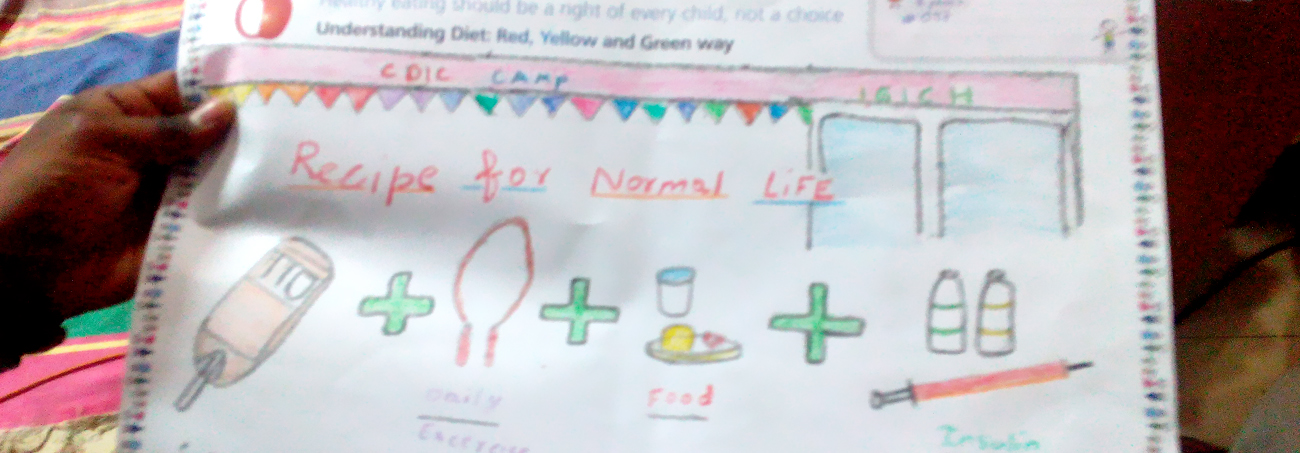 Healthy eating should be a right of every child, not a choice
Understanding Diet: Red, Yellow and Green way
CDIC CAMP
IGICH
Recipe for Normal LiFE
110
Daily
Excercise
Food
Insulin